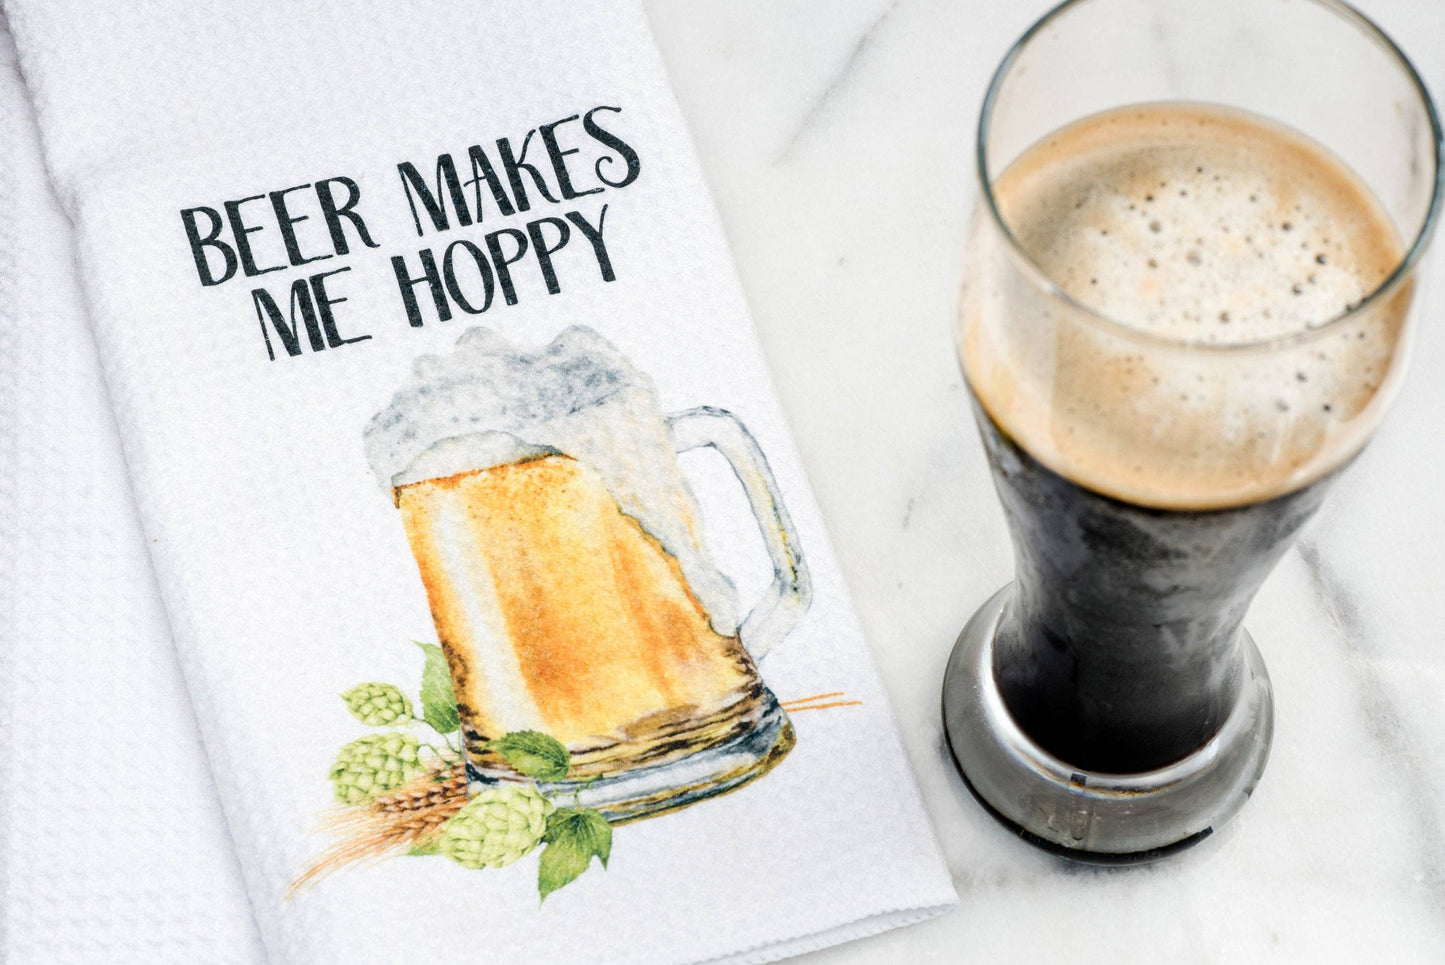 BEER MAKES
ME HOPPY